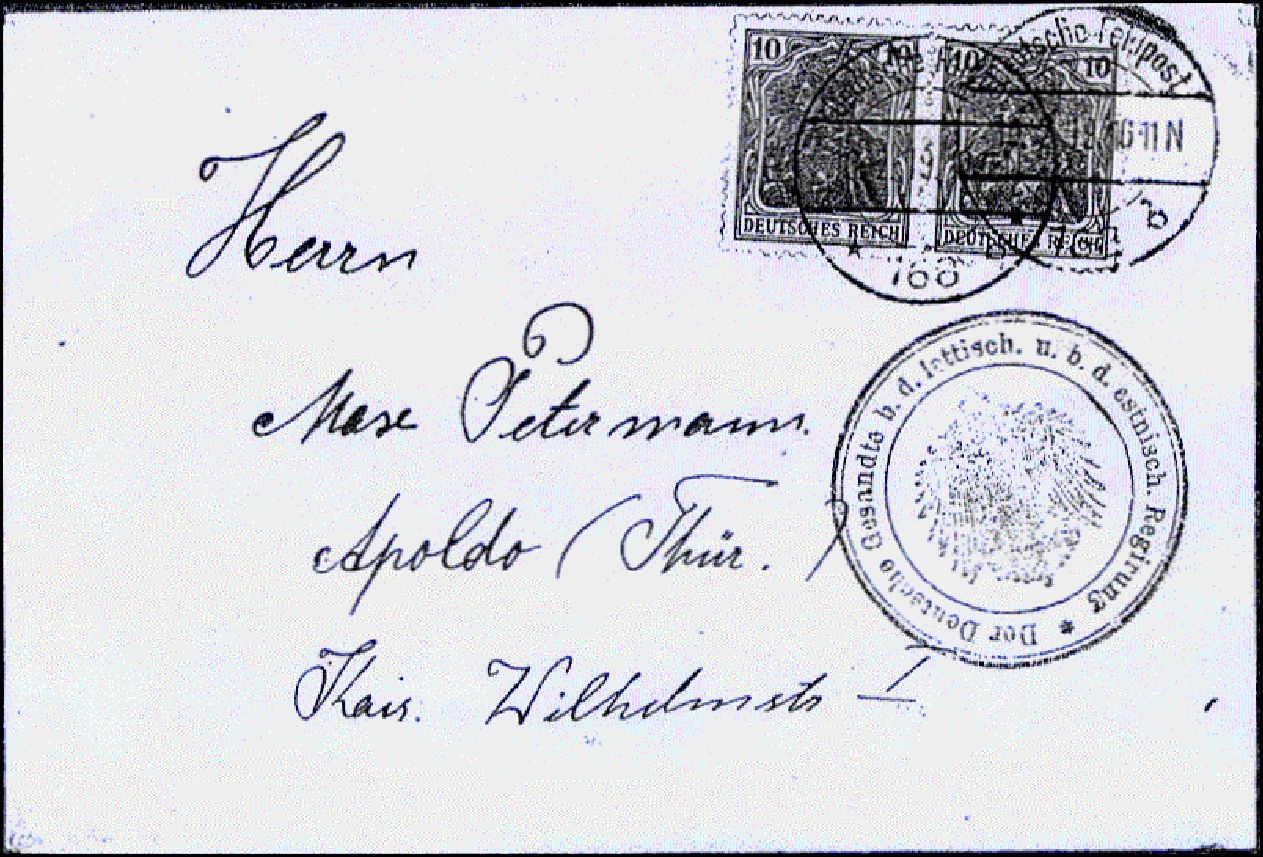 10 10
10 10
DEUTSCHES REICH
DEUTSCHES REICH
Deutsche Feldpost
6-11 N
168
Herrn
Max Petermann
Apolda (Thür.)
Kais. Wilhelmstr I
Der Deutsche Gesandte b. d. lettisch. u. b. d. estnisch. Regirung *